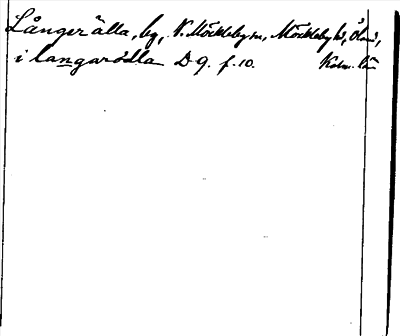 Långerälla, by, N. Möckleby sn, Möckleby hd, Öland,
i langarødla D 9. f. 10. Kalm. län